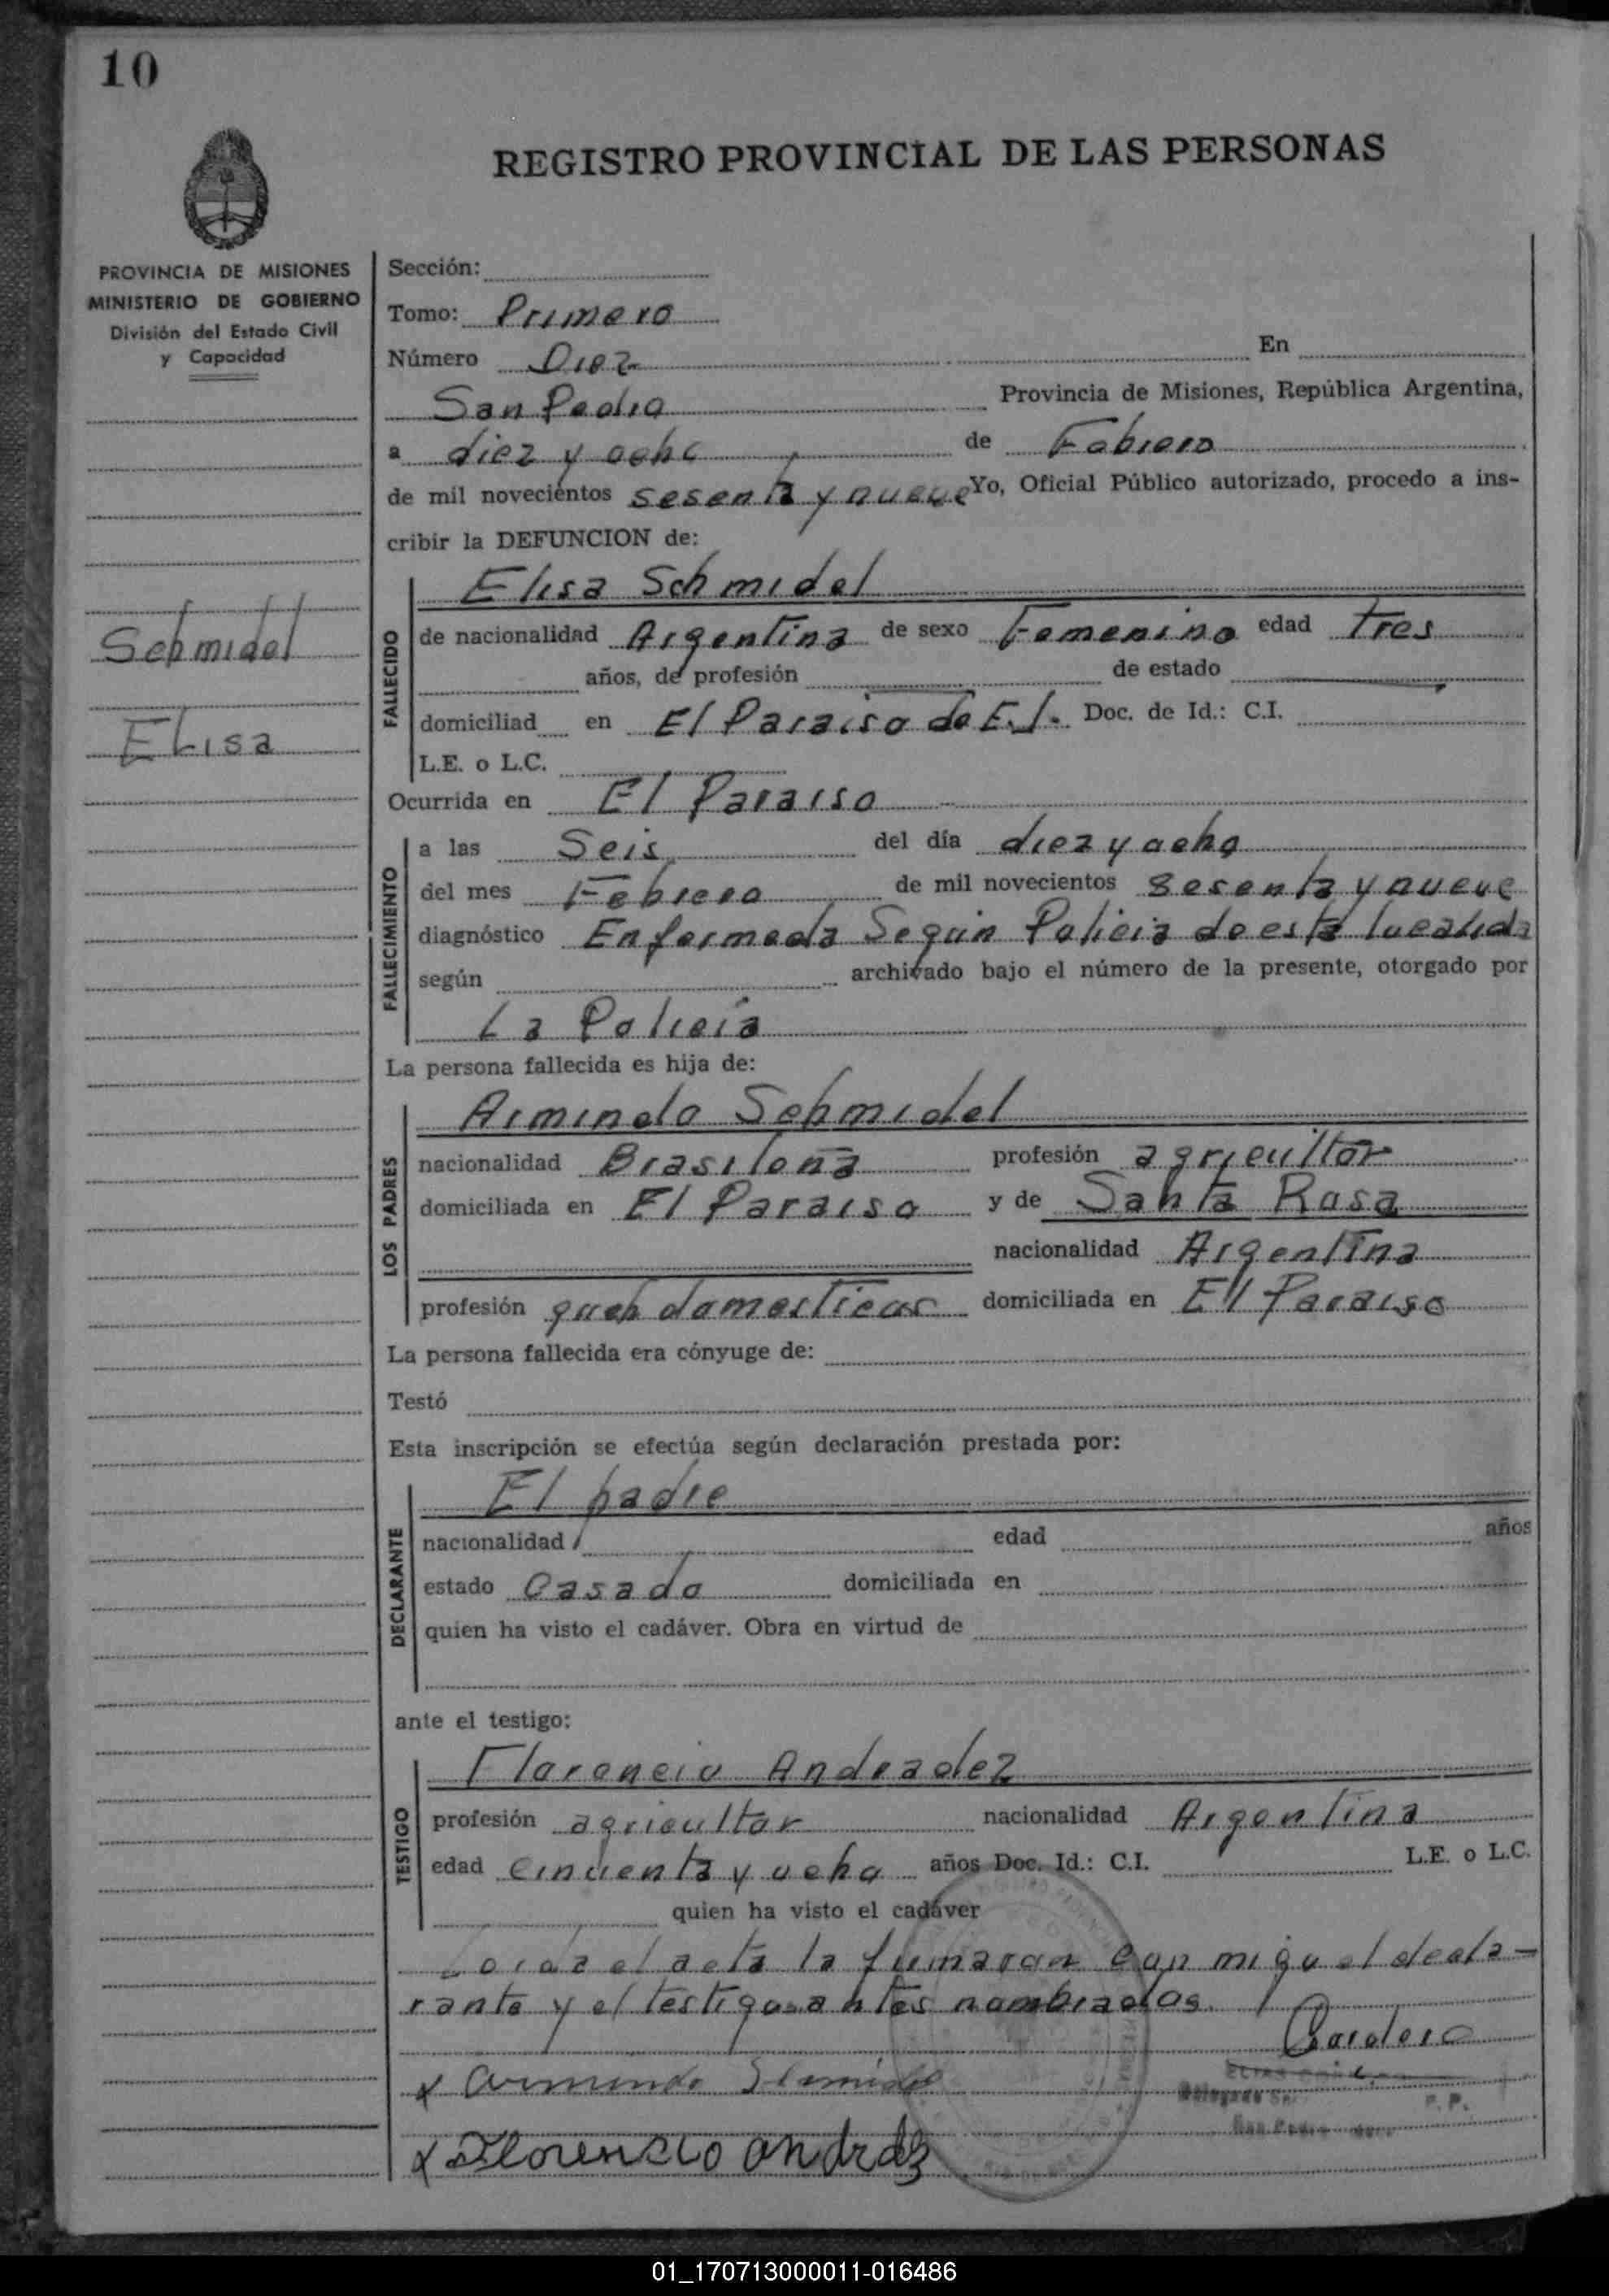 10
REGISTRO PROVINCIAL DE LAS PERSONAS
PROVINCIA DE MISIONES
MINISTERIO DE GOBIERNO
División del Estado Civil
y Capacidad
Schmidel
Elisa
Sección:
Tomo: Primero
Número Diez En
San Pedro Provincia de Misiones, República Argentina,
a diez y ocho de Febrero
de mil novecientos sesenta y nueve Yo, Oficial Público autorizado, procedo a ins-
cribir la DEFUNCION de:
FALLECIDO
Elisa Schmidel
de nacionalidad Argentina de sexo Femenino edad tres
años, de profesión de estado
domiciliad en El Paraiso de E.I. Doc. de Id.: C.I.
L.E. o L.C.
Ocurrida en El Paraiso
FALLECIMIENTO
a las Seis del día diez y ocho
del mes Febrero de mil novecientos sesenta y nueve
diagnóstico Enfermeda Segun Policia de esta localida
según archivado bajo el número de la presente, otorgado por
La Policía
La persona fallecida es hija de:
LOS PADRES
Armindo Schmidel
nacionalidad Brasileña profesión agricultor
domiciliada en El Paraiso y de Santa Rosa
nacionalidad Argentina
profesión domesticas domiciliada en El Paraiso
La persona fallecida era cónyuge de:
Testó
Esta inscripción se efectúa según declaración prestada por:
DECLARANTE
El padre
nacionalidad edad años
estado Casado domiciliada en
quien ha visto el cadáver. Obra en virtud de
ante el testigo:
TESTIGO
Florencio Andradez
profesión agricultor nacionalidad Argentina
edad cincuenta y ocho años Doc. Id.: C.I. L.E. o L.C.
quien ha visto el cadáver
el acta la firmaran con migo el decla-
rante y el testigos antes nombrados.
x Armindo
x Florencio andrdz
San Pedro
01_170713000011-016486